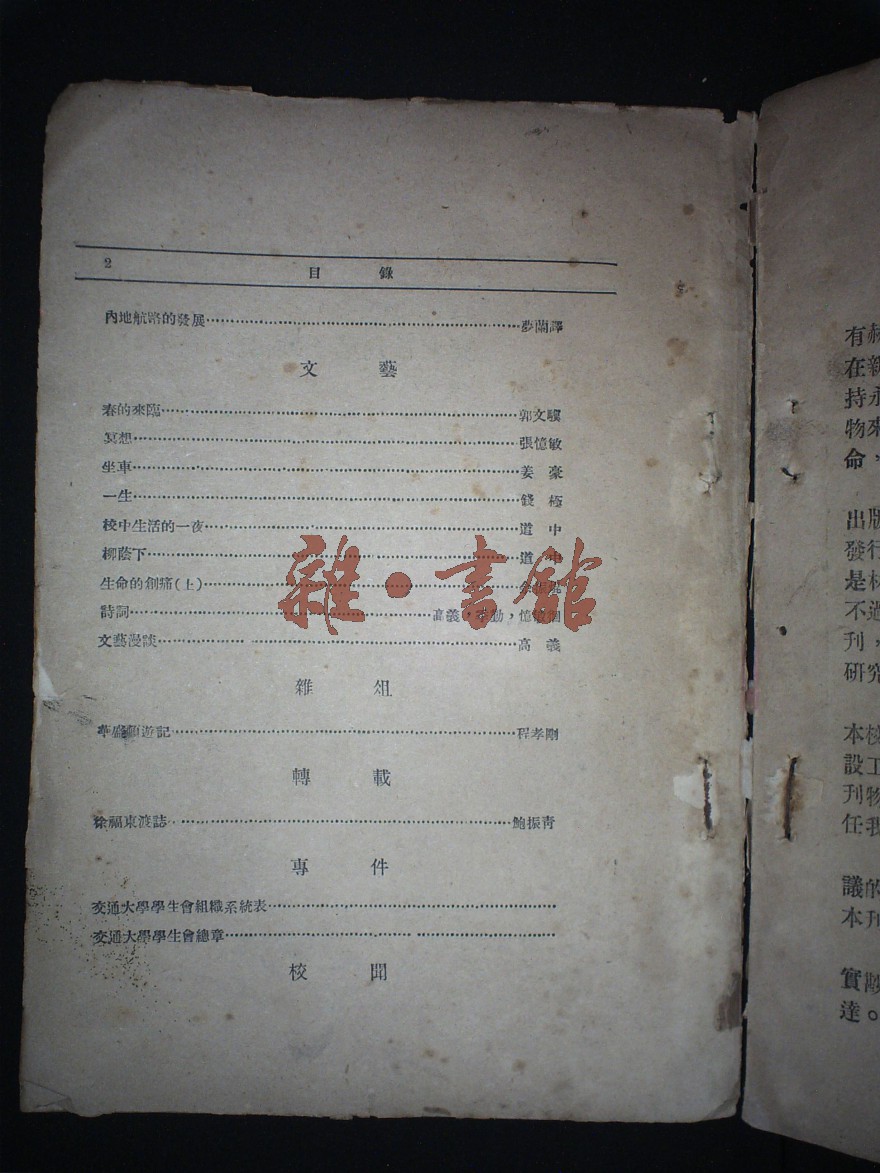 2
目錄
內地航路的發展……夢蘭譯
文藝
春的來臨……郭文驥
冥想……張憶敏
坐車……姜豪
一生……錢極
校中生活的一夜……道中
柳蔭下……道中
生命的創痛(上)……
詩詞……高義，
文藝漫談……高義
雜俎
遊記……程孝剛
轉載
徐福東渡誌……鮑振青
專件
交通大學學生會組織系統表……
交通大學學生會總章……
校聞
雜·書館
有
在
持
物來
命，
出版
發行
是
不過
刊，
研究
本校
設工
刊物
任我
議的
本刊
實
達。